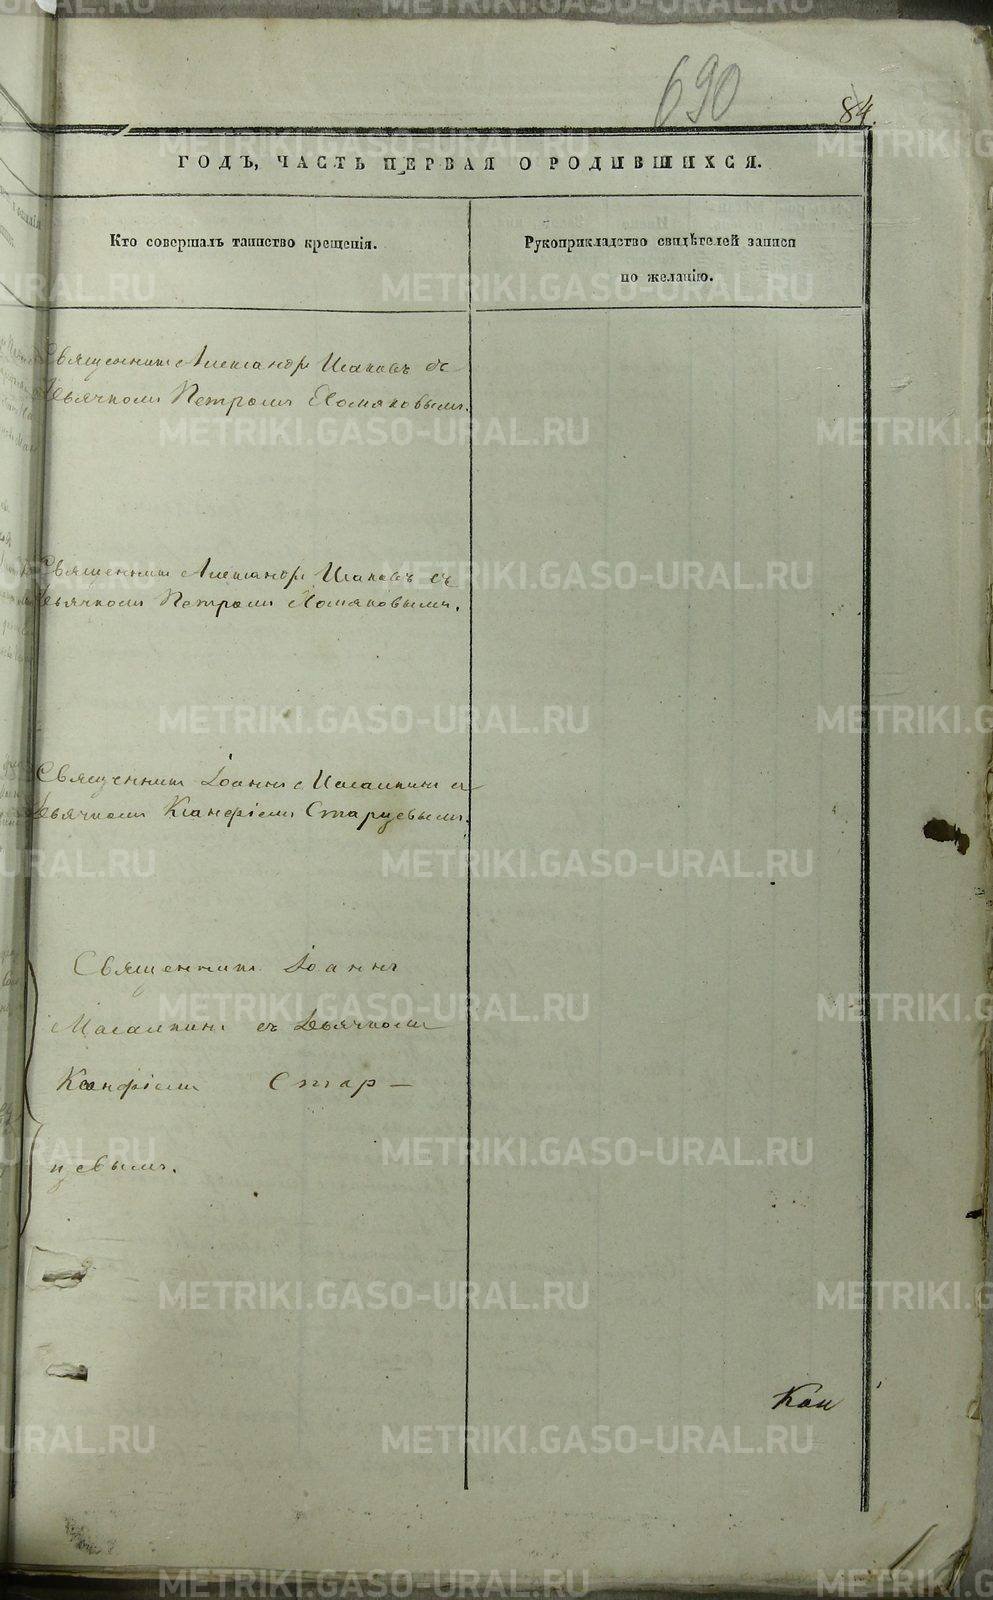 690
84.
ГОДЪ, ЧАСТЬ ПЕРВАЯ О РОДИВШИХСЯ.
Кто совершалъ таинство крещенія.
Рукоприкладство свидѣтелей записи
по желанію.
Священник Александръ Исаковъ съ
Дьячкомъ Петромъ Хомяковымъ.
Священник Александръ Исаковъ съ
Дьячкомъ Петромъ Хомяковымъ.
Священник Іоаннъ съ
Дьячкомъ Ксанфіемъ Старцевымъ.
Священник Іоаннъ
съ Дьячкомъ
Ксанфіемъ Стар-
цевымъ.
METRIKI.GASO-URAL.RU